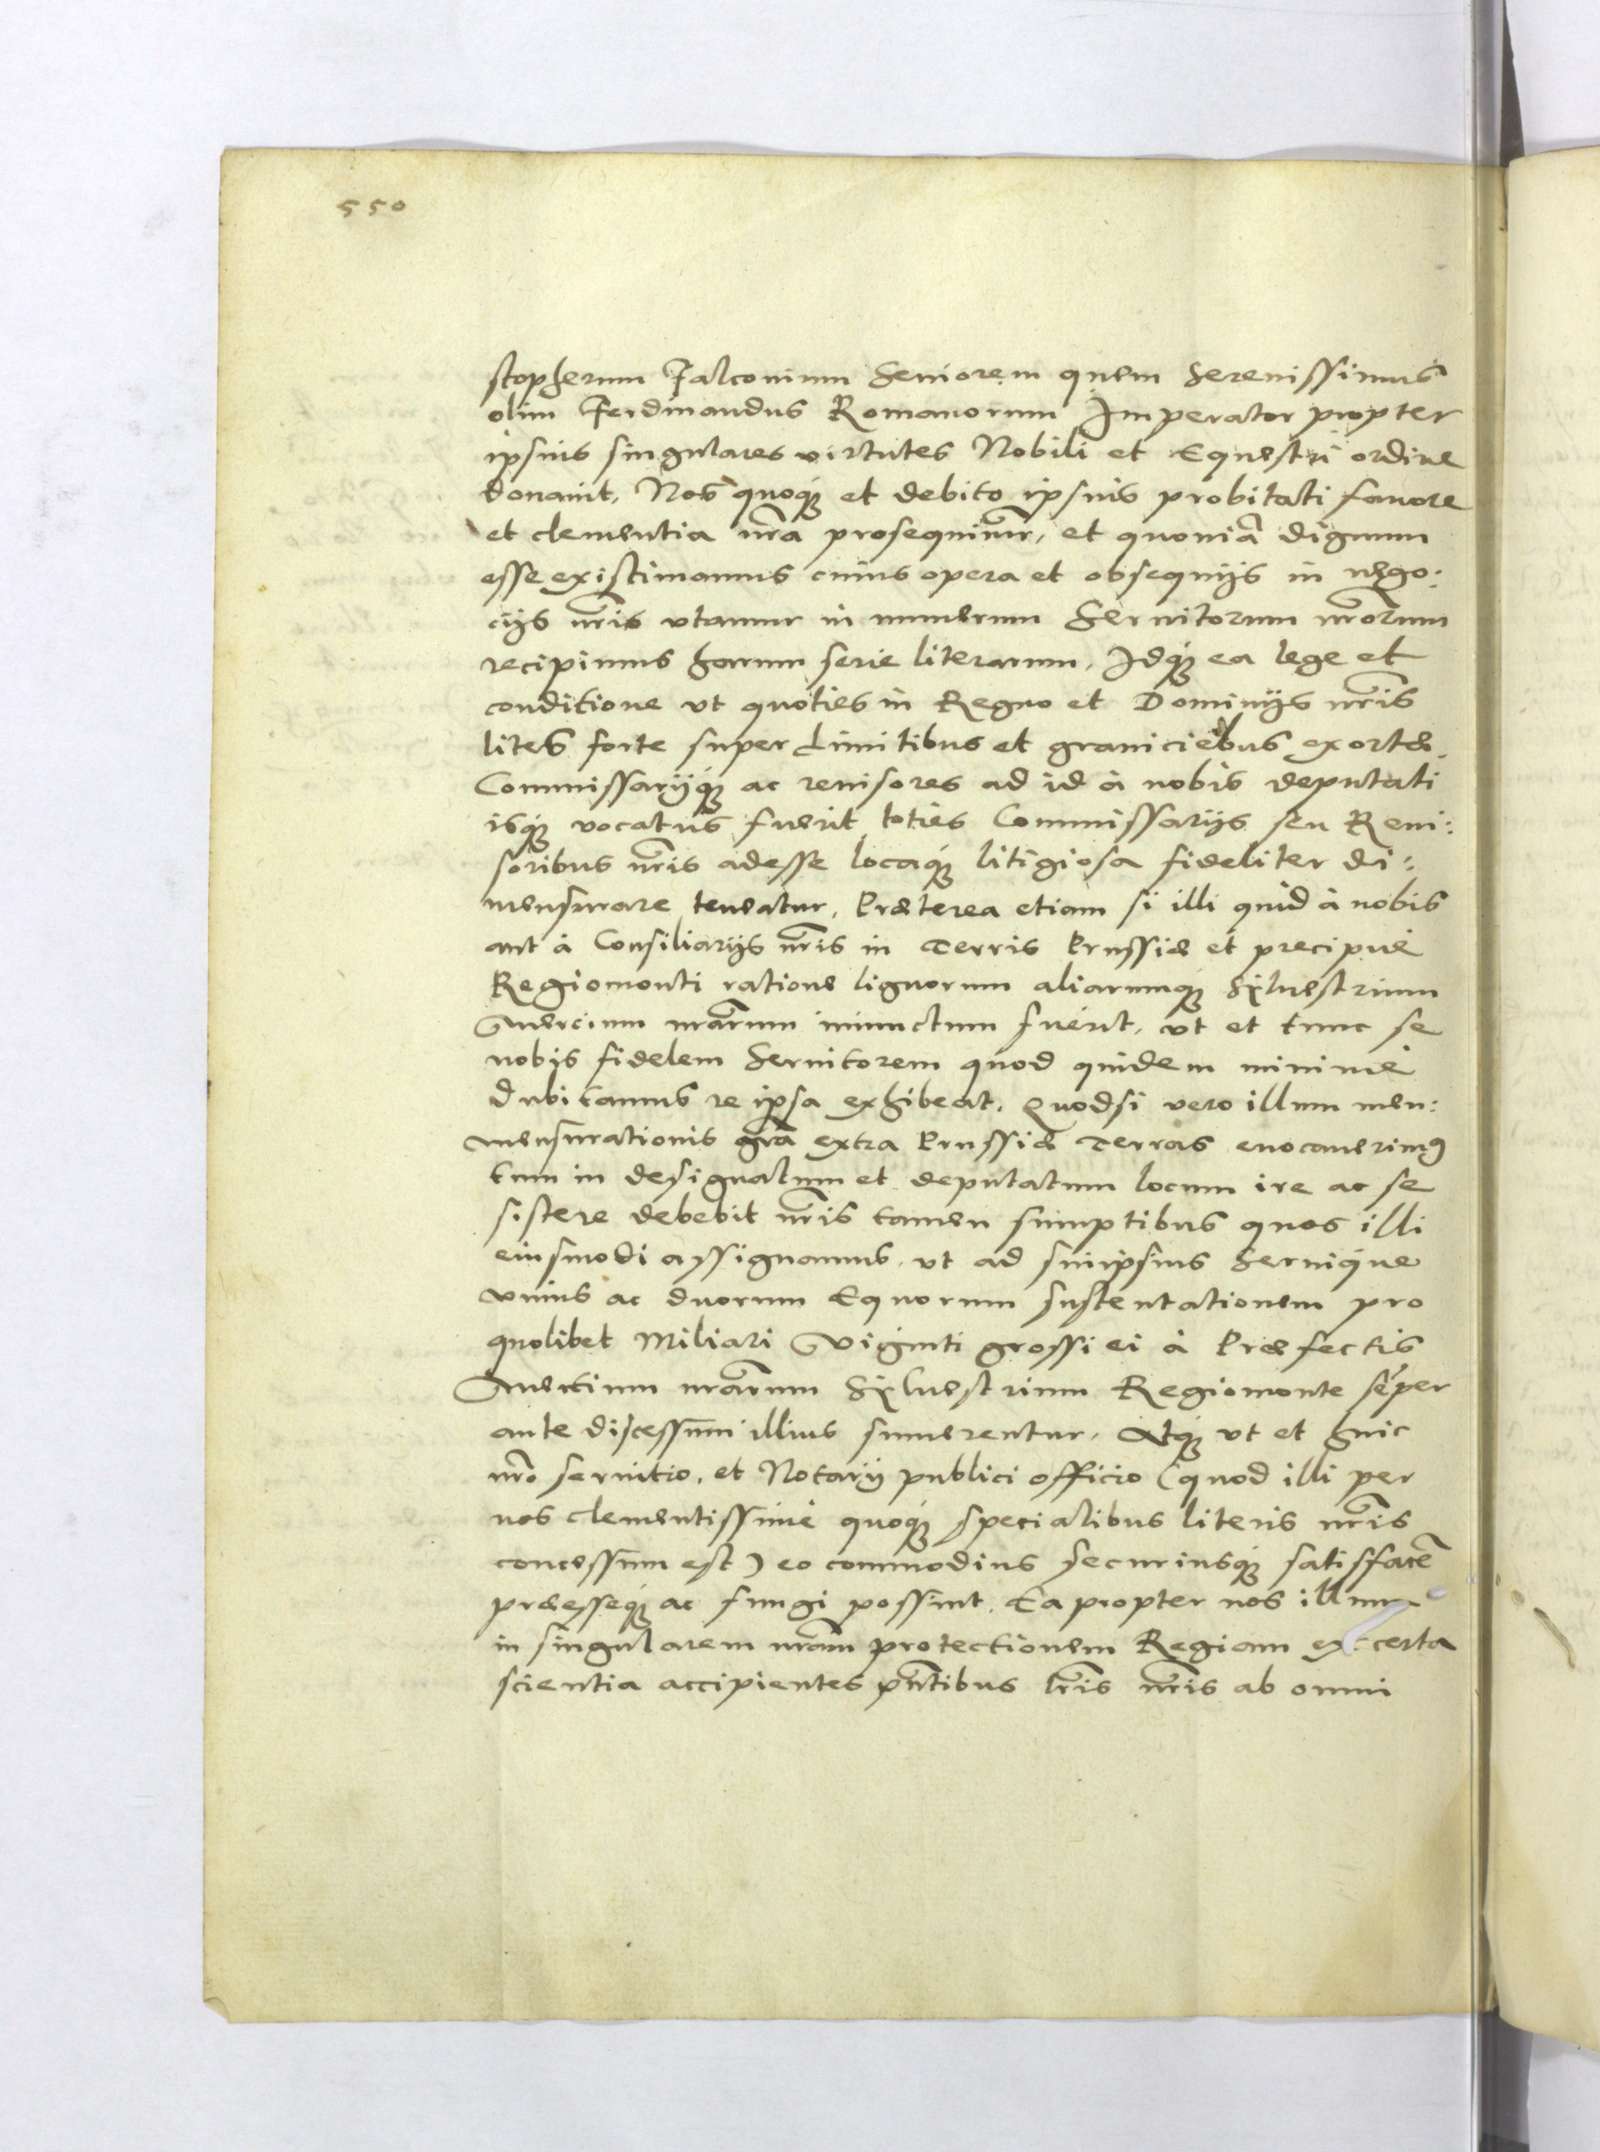 550
stopherum Falconium Seniorem quem Serenissimus
olim Ferdinandus Romanorum Imperator propter
ipsius singulares virtutes Nobili et Equestri ordine
donauit, Nos quoq́ue et debito ipsius probitati fauore
et clementia nr̃a prosequimur, et quoniã dignum
esse existimamus cuius opera et obsequijs in nego:
cijs nr̃is vtamur in numerum Seruitorum nr̃orum
recipimus harum serie literarum, Idq́ue ea lege et
conditione vt quoties in Regno et Dominijs nr̃is
lites forte super Limitibus et graniciebus exortæ,
Commissarijq́ue ac reuisores ad id à nobis deputati
isq́ue vocatus fuerit toties Commissarijs seu Reui:
soribus nr̃is adesse locaq́ue litigiosa fideliter di:
mensurare teneatur, Præterea etiam si illi quid à nobis
aut à Consiliarijs nr̃is in Terris Prussiæ et precipuè
Regiomonti ratione lignorum aliarumq́ue Syluestrium
Mercium nr̃arum iniunctum fuerit, vt et tunc se
nobis fidelem Seruitorem quod quidem minimè
dubitamus re ipsa exhibeat, Quodsi vero illum men:
mensurationis grã extra Prussiæ Terras euocauerimus
tum in designatum et deputatum locum ire ac se
sistere debebit nr̃is tamen sumptibus quos illi
eiusmodi assignamus, vt ad suiipsius Seruiq́ue
vnius ac duorum Equorum sustentationem pro
quolibet Miliari Viginti grossi ei à Præfectis
Mercium nr̃arum Syluestrium Regiomonte sẽper
ante discessum illius numerentur, Atq́ue vt et huic
nr̃o seruitio, et Notarij publici officio (quod illi per
nos clementissimè quoq́ue specialibus literis nr̃is
concessum est) eo commodius securiusq́ue satisfacẽ
præesseq́ue ac fungi possint, Ea propter nos illum
in singularem nr̃am protectionem Regiam ex certa
scientia accipientes pñtibus lr̃is nr̃is ab omni